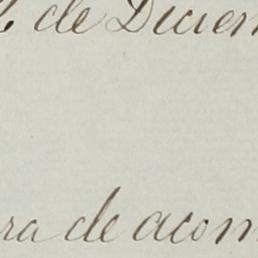 de Diciem
ra de acom